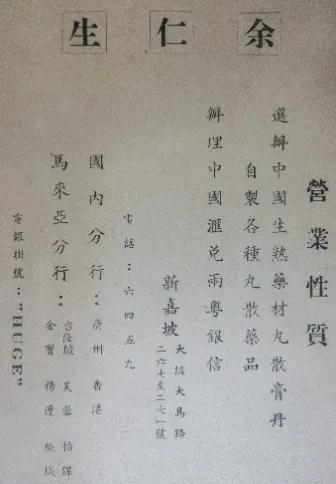 余仁生
營業性質
選辦中國生熟藥材丸散膏丹
自製各種丸散藥品
辦理中國滙兌兩粵銀信
新嘉坡
大坡大馬路
二六七至二七一號
電話：六四五九
國內分行：廣州香港
馬來亞分行：
吉隆坡 芙蓉 怡保
金寶 務邊 檳城
電報掛號："HUGE"